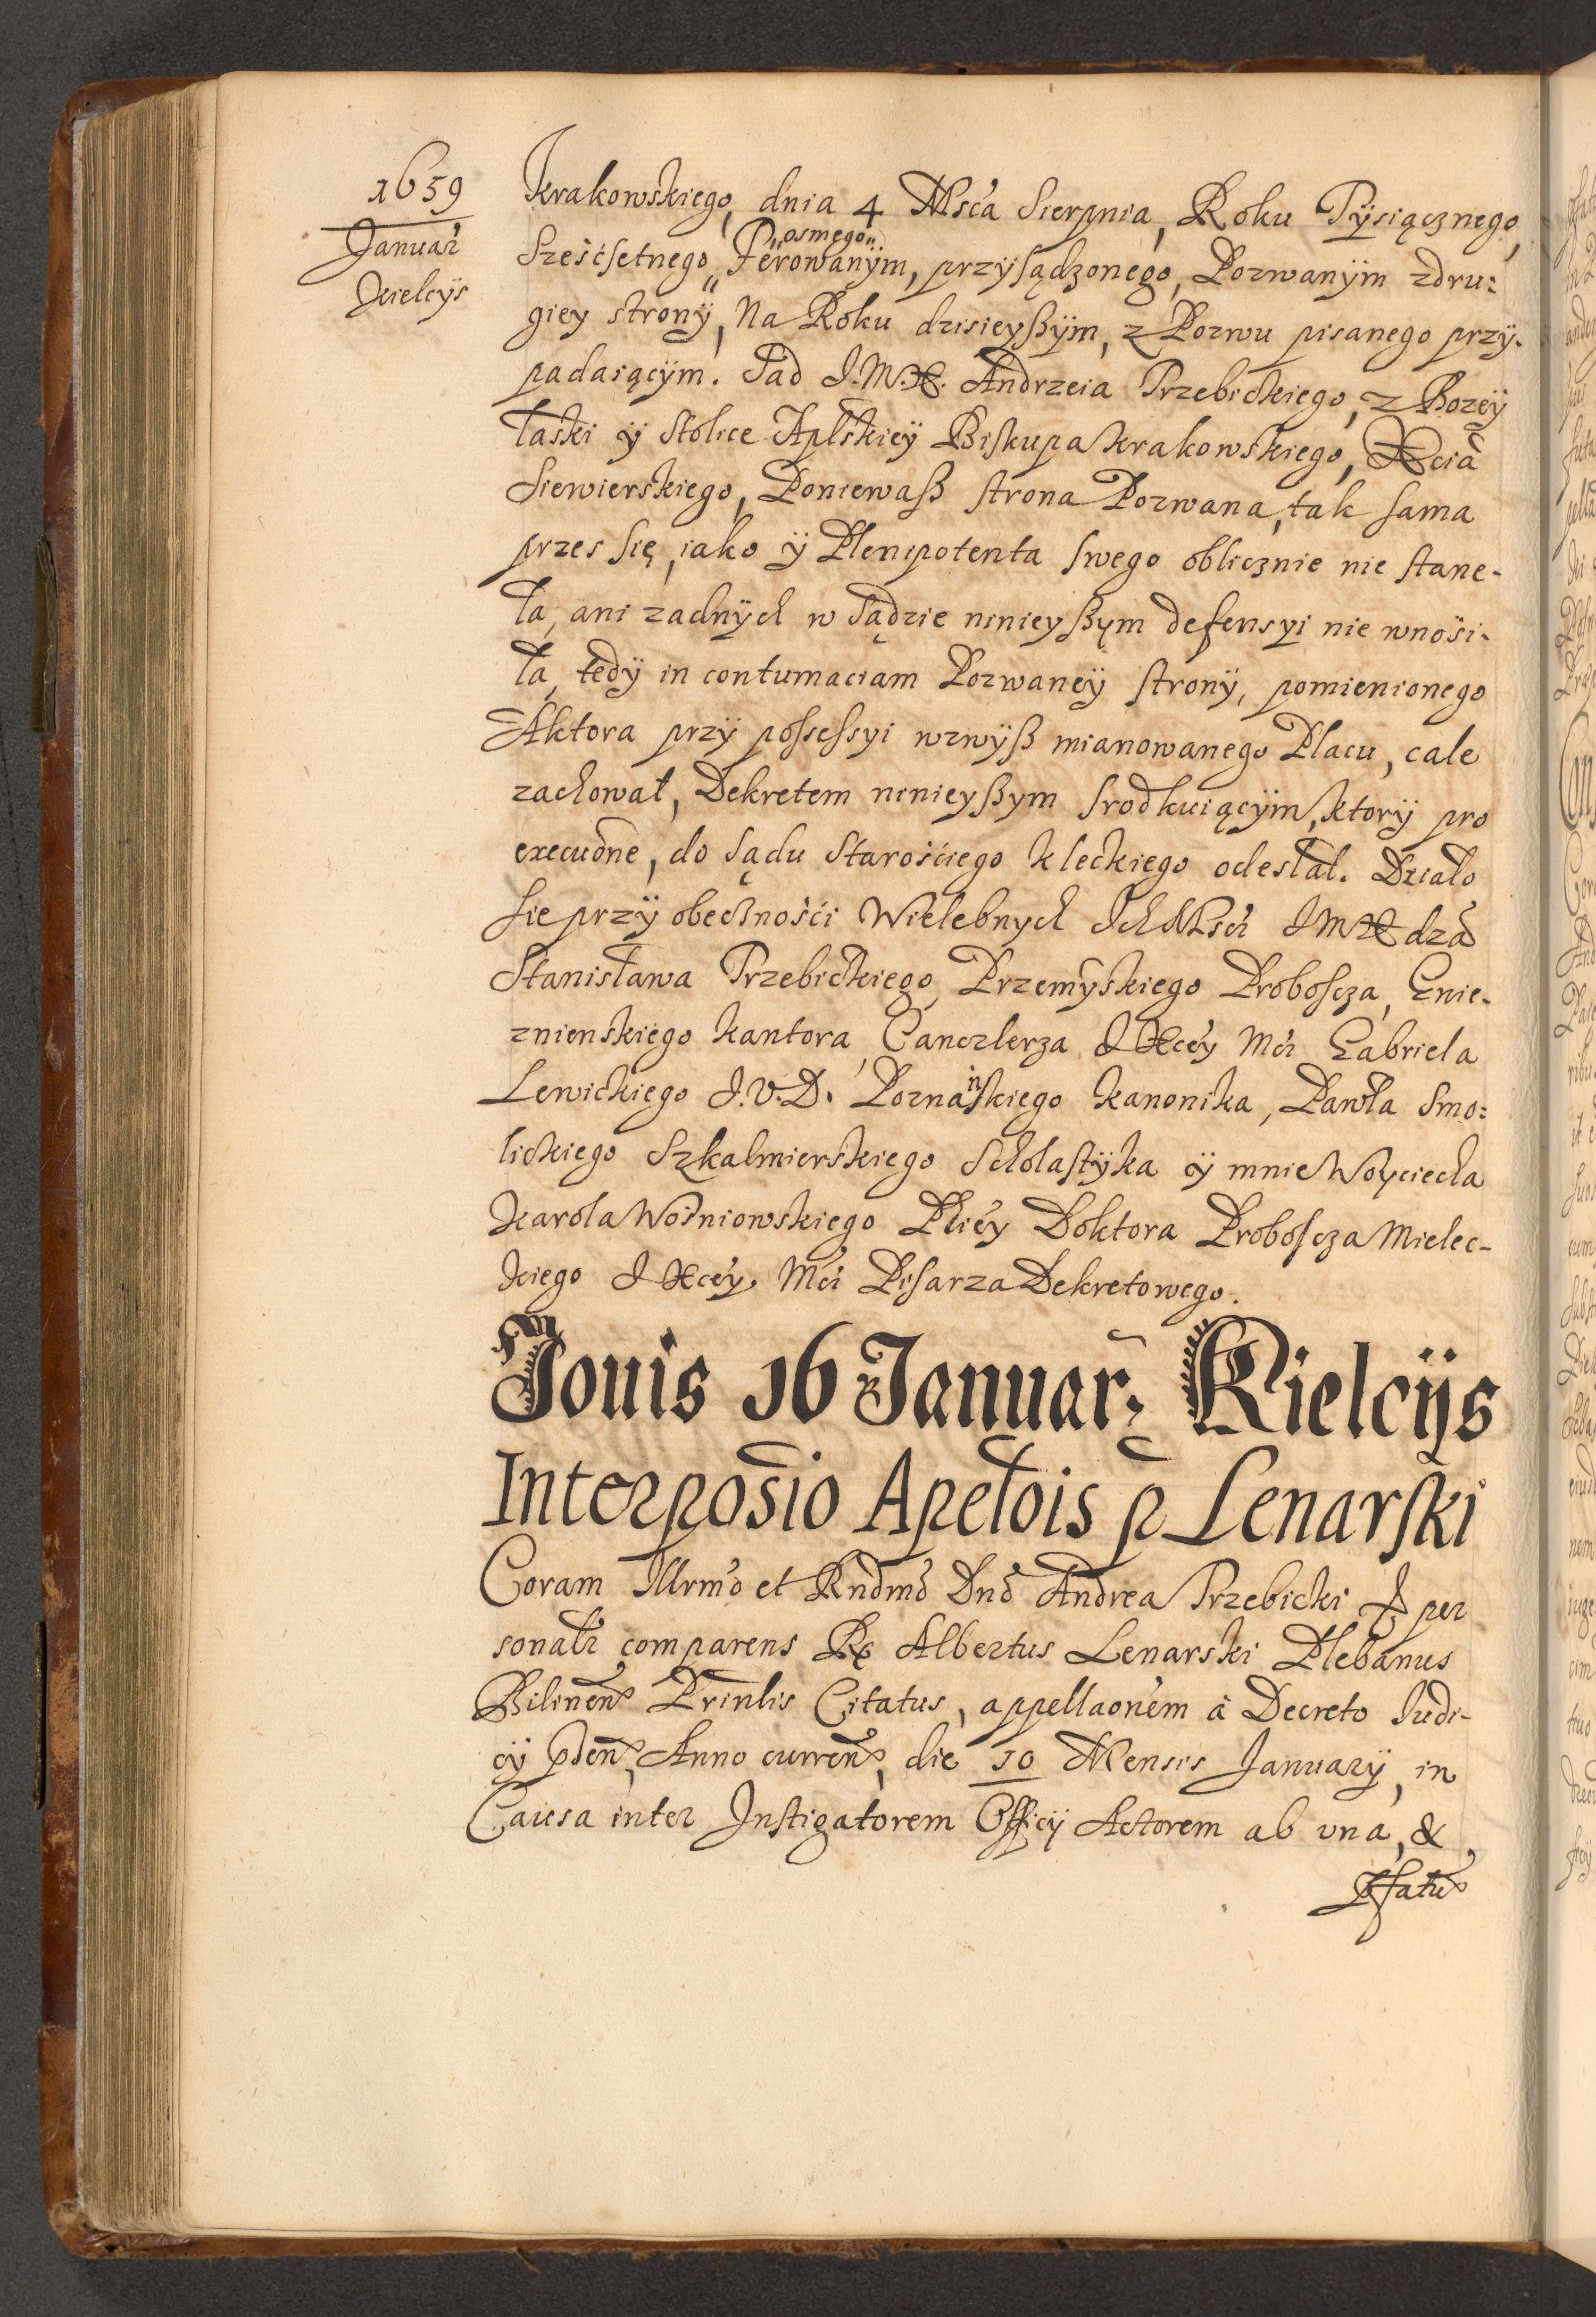 1659
Januar
Kielcÿs
Krakowskiego, dnia 4 Msća Sierpnia, Roku Tÿsiącznego,
Sześćsetnego „osmego„ Ferowanÿm, przysądzonego, Pozwanÿm zdru:
giey stronÿ, Na Roku dzisieyßÿm, z Pozwu pisanego przÿ-
padaiącÿm. Sąd J.M.X. Andrzeia Trzebickiego, z Bozeÿ
łaski ÿ Stolice Aplskieÿ Biskupa Krakowskiego, Xcia
Siewierskiego, Poniewaß strona Pozwana, tak sama
przes się, iako ÿ Plenipotenta swego oblicznie nie stane-
ła, ani zadnÿch w Sądzie ninieyßym defensyi nie wnosi-
ła, tedÿ in contumaciam Pozwaneÿ stronÿ, pomienionego
Aktora przÿ possessyi wzwÿß mianowanego Placu, cale
zachował, Dekretem ninieyßym srodkuiącÿm, ktorÿ pro
execuone, do Sądu Starośćiego kleckiego odesłał. Działo
sie przÿ obecznośći Wielebnych Ich Mśći J M X dza
Stanisława Trzebickiego, Przemyskiego Proboscza, Gnie-
znienskiego Kantora, Canczlerza J Xcey Mći Gabriela
Lewickiego J.V.D. Poznańskiego Kanonika, Pawła Smo:
lickiego Szkalmierskiego Scholastÿka ÿ mnie Woyciecha
Karola Wośniowskiego Phiey Doktora Proboscza Mielec-
kiego J Xcey Mći Pisarza Dekretowego.
Jouis 16 Januar: Kielcijs
Interposio Apelois p Lenarski
Coram Illrmo et Rndmo Dno Andrea Trzebicki & per
sonalr comparens Rx Albertus Lenarski Plebanus
Bilinen Prinlis Citatus, appellaonem à Decreto Judi-
cÿ pden, Anno curren, die 10 Mensis Januarÿ, in
Causa inter Instigatorem Officÿ Actorem ab vna, &
Pfatu